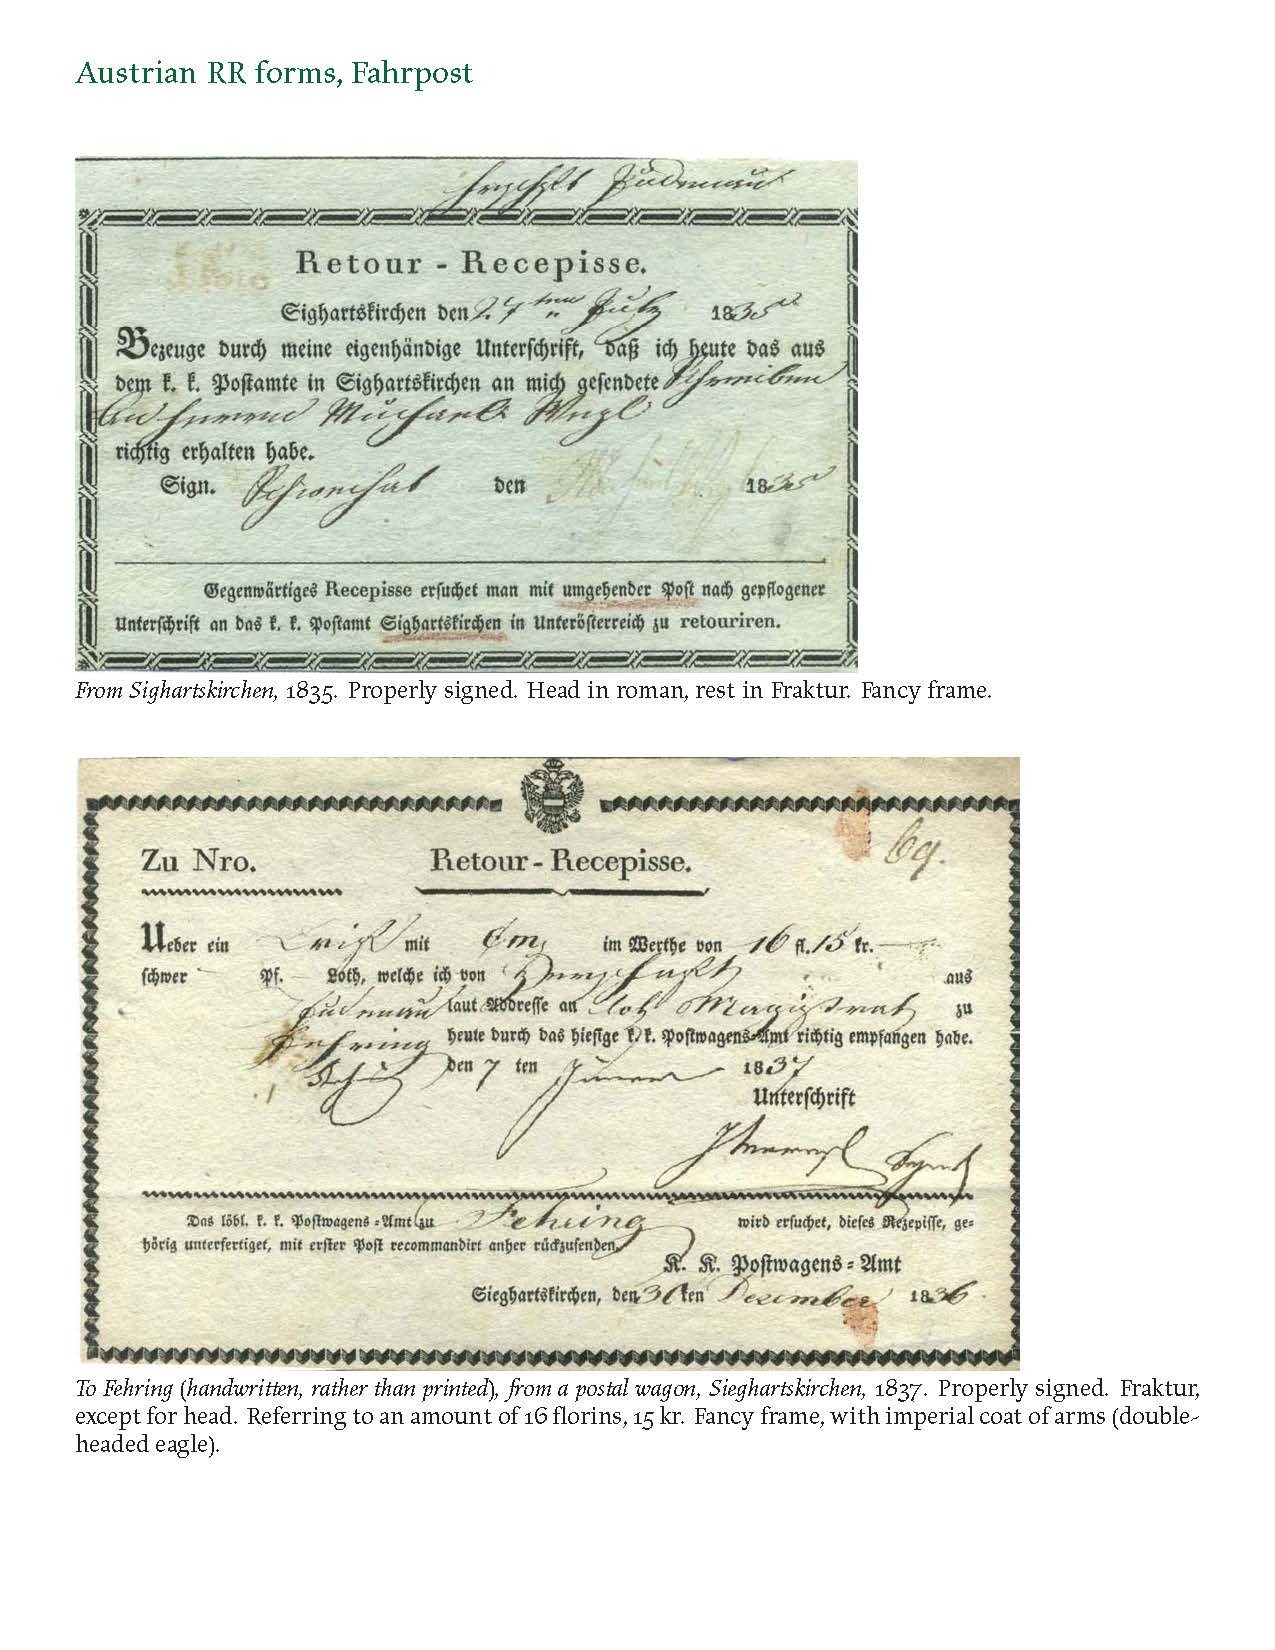 Austrian RR forms, Fahrpost
Retour - Recepisse.
Sighartskirchen den 27ten July 1835
Bezeuge durch meine eigenhändige Unterschrift, daß ich heute das aus
dem k. k. Postamte in Sighartskirchen an mich gesendete Schreiben
richtig erhalten habe.
Sign. den 1835
Gegenwärtiges Recepisse ersuchet man mit umgehender Post nach gepflogener
Unterschrift an das k. k. Postamt Sighartskirchen in Unterösterreich zu retouriren.
From Sighartskirchen, 1835. Properly signed. Head in roman, rest in Fraktur. Fancy frame.
69.
Zu Nro. Retour - Recepisse.
Ueber ein mit im Werthe von 16 fl. 15 kr.
schwer Pf. Loth, welche ich von aus
laut Addresse an Magistrat zu
Fehring heute durch das hiesige k. k. Postwagens-Amt richtig empfangen habe.
den 7 ten 1837
Unterschrift
Das löbl. k. k. Postwagens-Amt zu Fehring wird ersuchet, dieses Rezepisse, ge-
hörig unterfertiget, mit erster Post recommandirt anher rückzusenden.
K. K. Postwagens-Amt
Sieghartskirchen, den 30 ten Dezember 1836
To Fehring (handwritten, rather than printed), from a postal wagon, Sieghartskirchen, 1837. Properly signed. Fraktur,
except for head. Referring to an amount of 16 florins, 15 kr. Fancy frame, with imperial coat of arms (double-
headed eagle).